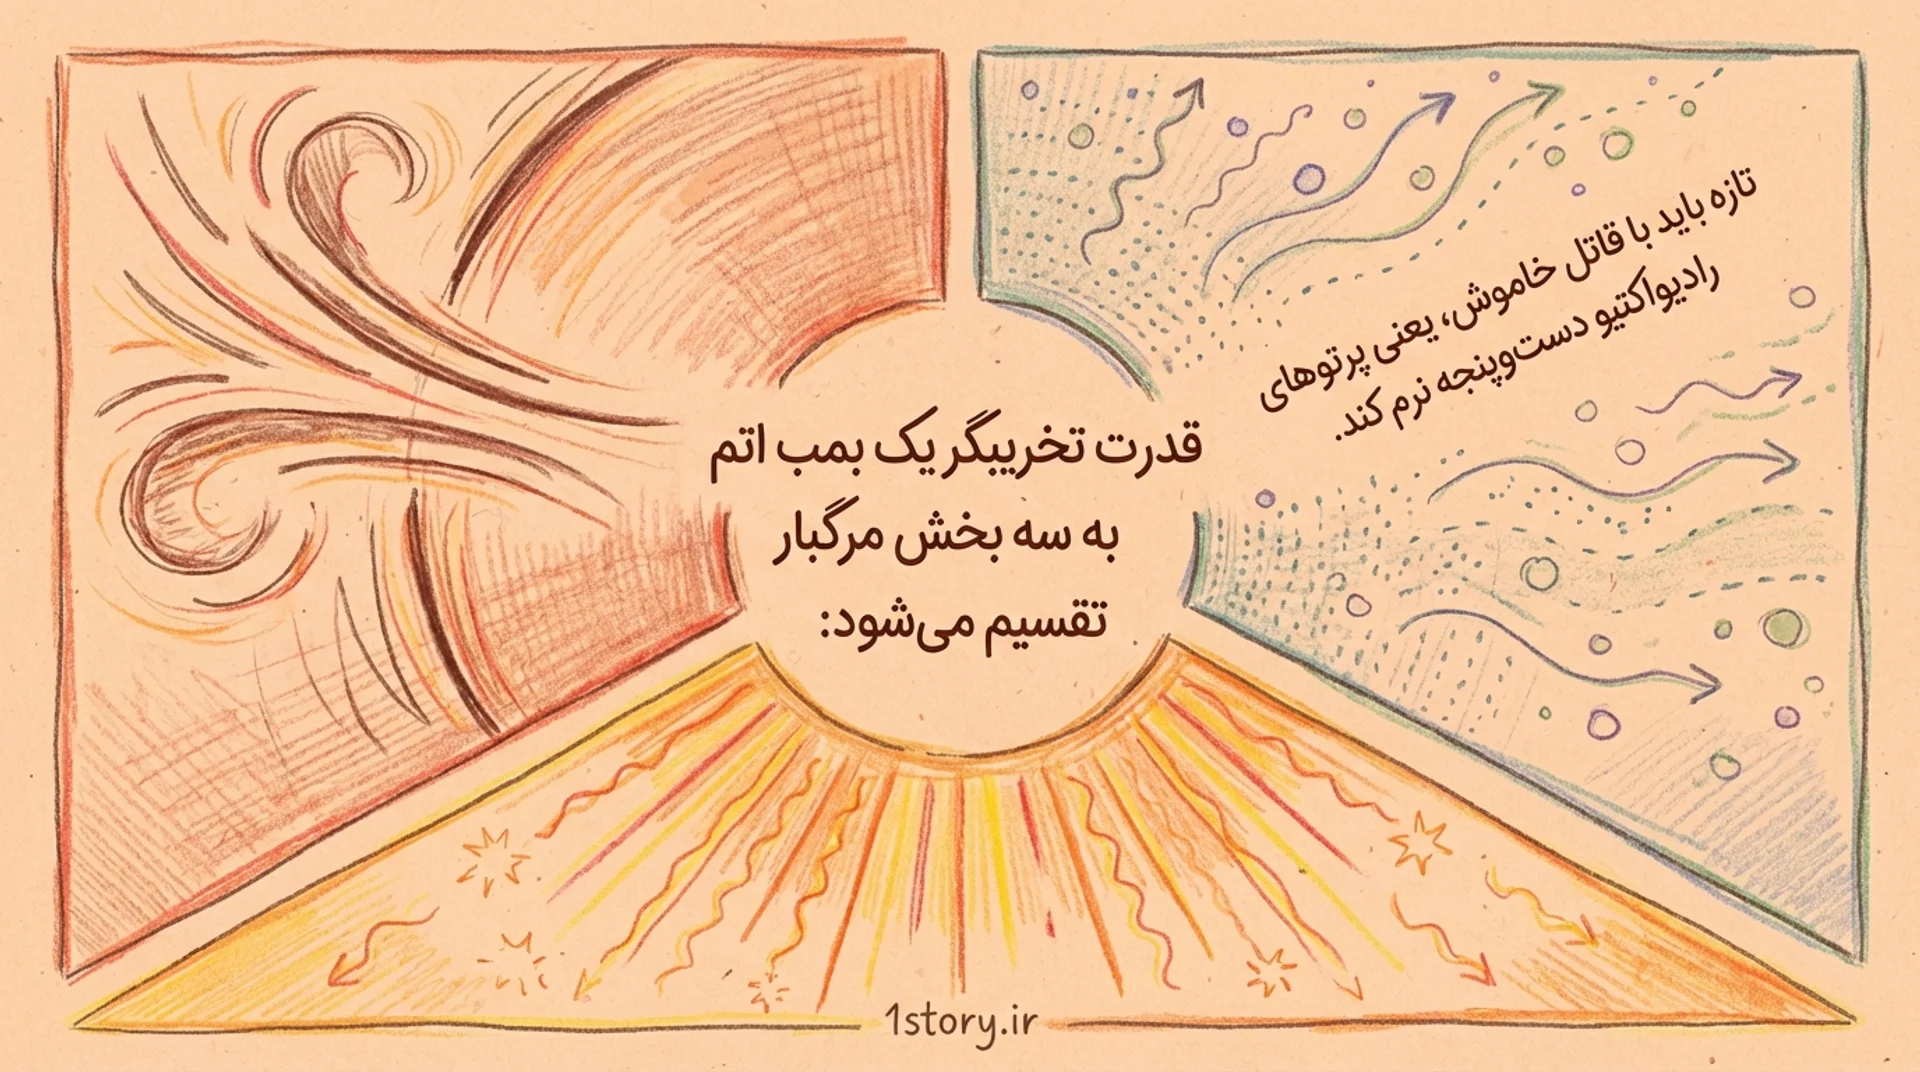 قدرت تخریبگر یک بمب اتم
به سه بخش مرگبار
تقسیم می‌شود:
تازه باید با قاتل خاموش، یعنی پرتوهای
رادیواکتیو دست‌وپنجه نرم کند.
1story.ir